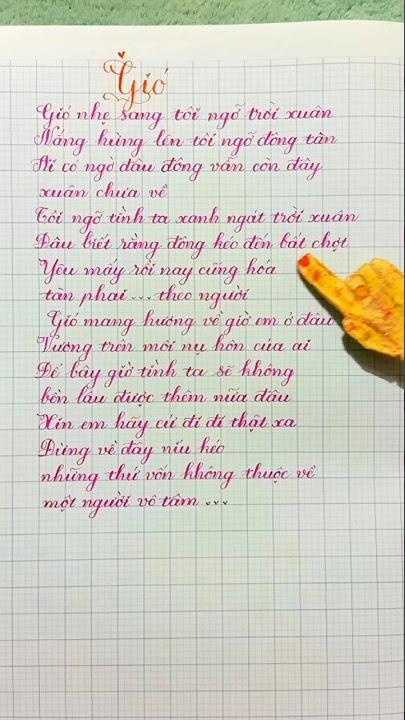 Gió
Gió nhẹ sang tôi ngỡ trời xuân
Nắng hừng lên tôi ngỡ đông tàn
Ai có ngờ đâu đông vẫn còn đây
xuân chưa về
Tôi ngỡ tình ta xanh ngát trời xuân
Đâu biết rằng đông kéo đến bất chợt
Yêu mấy rồi nay cũng hoá
tàn phai ... theo người
Gió mang hương về giờ em ở đâu
Vương trên môi nụ hôn của ai
Để bây giờ tình ta sẽ không
bền lâu được thêm nữa đâu
Xin em hãy cứ đi đi thật xa
Đừng về đây níu kéo
những thứ vốn không thuộc về
một người vô tâm ...